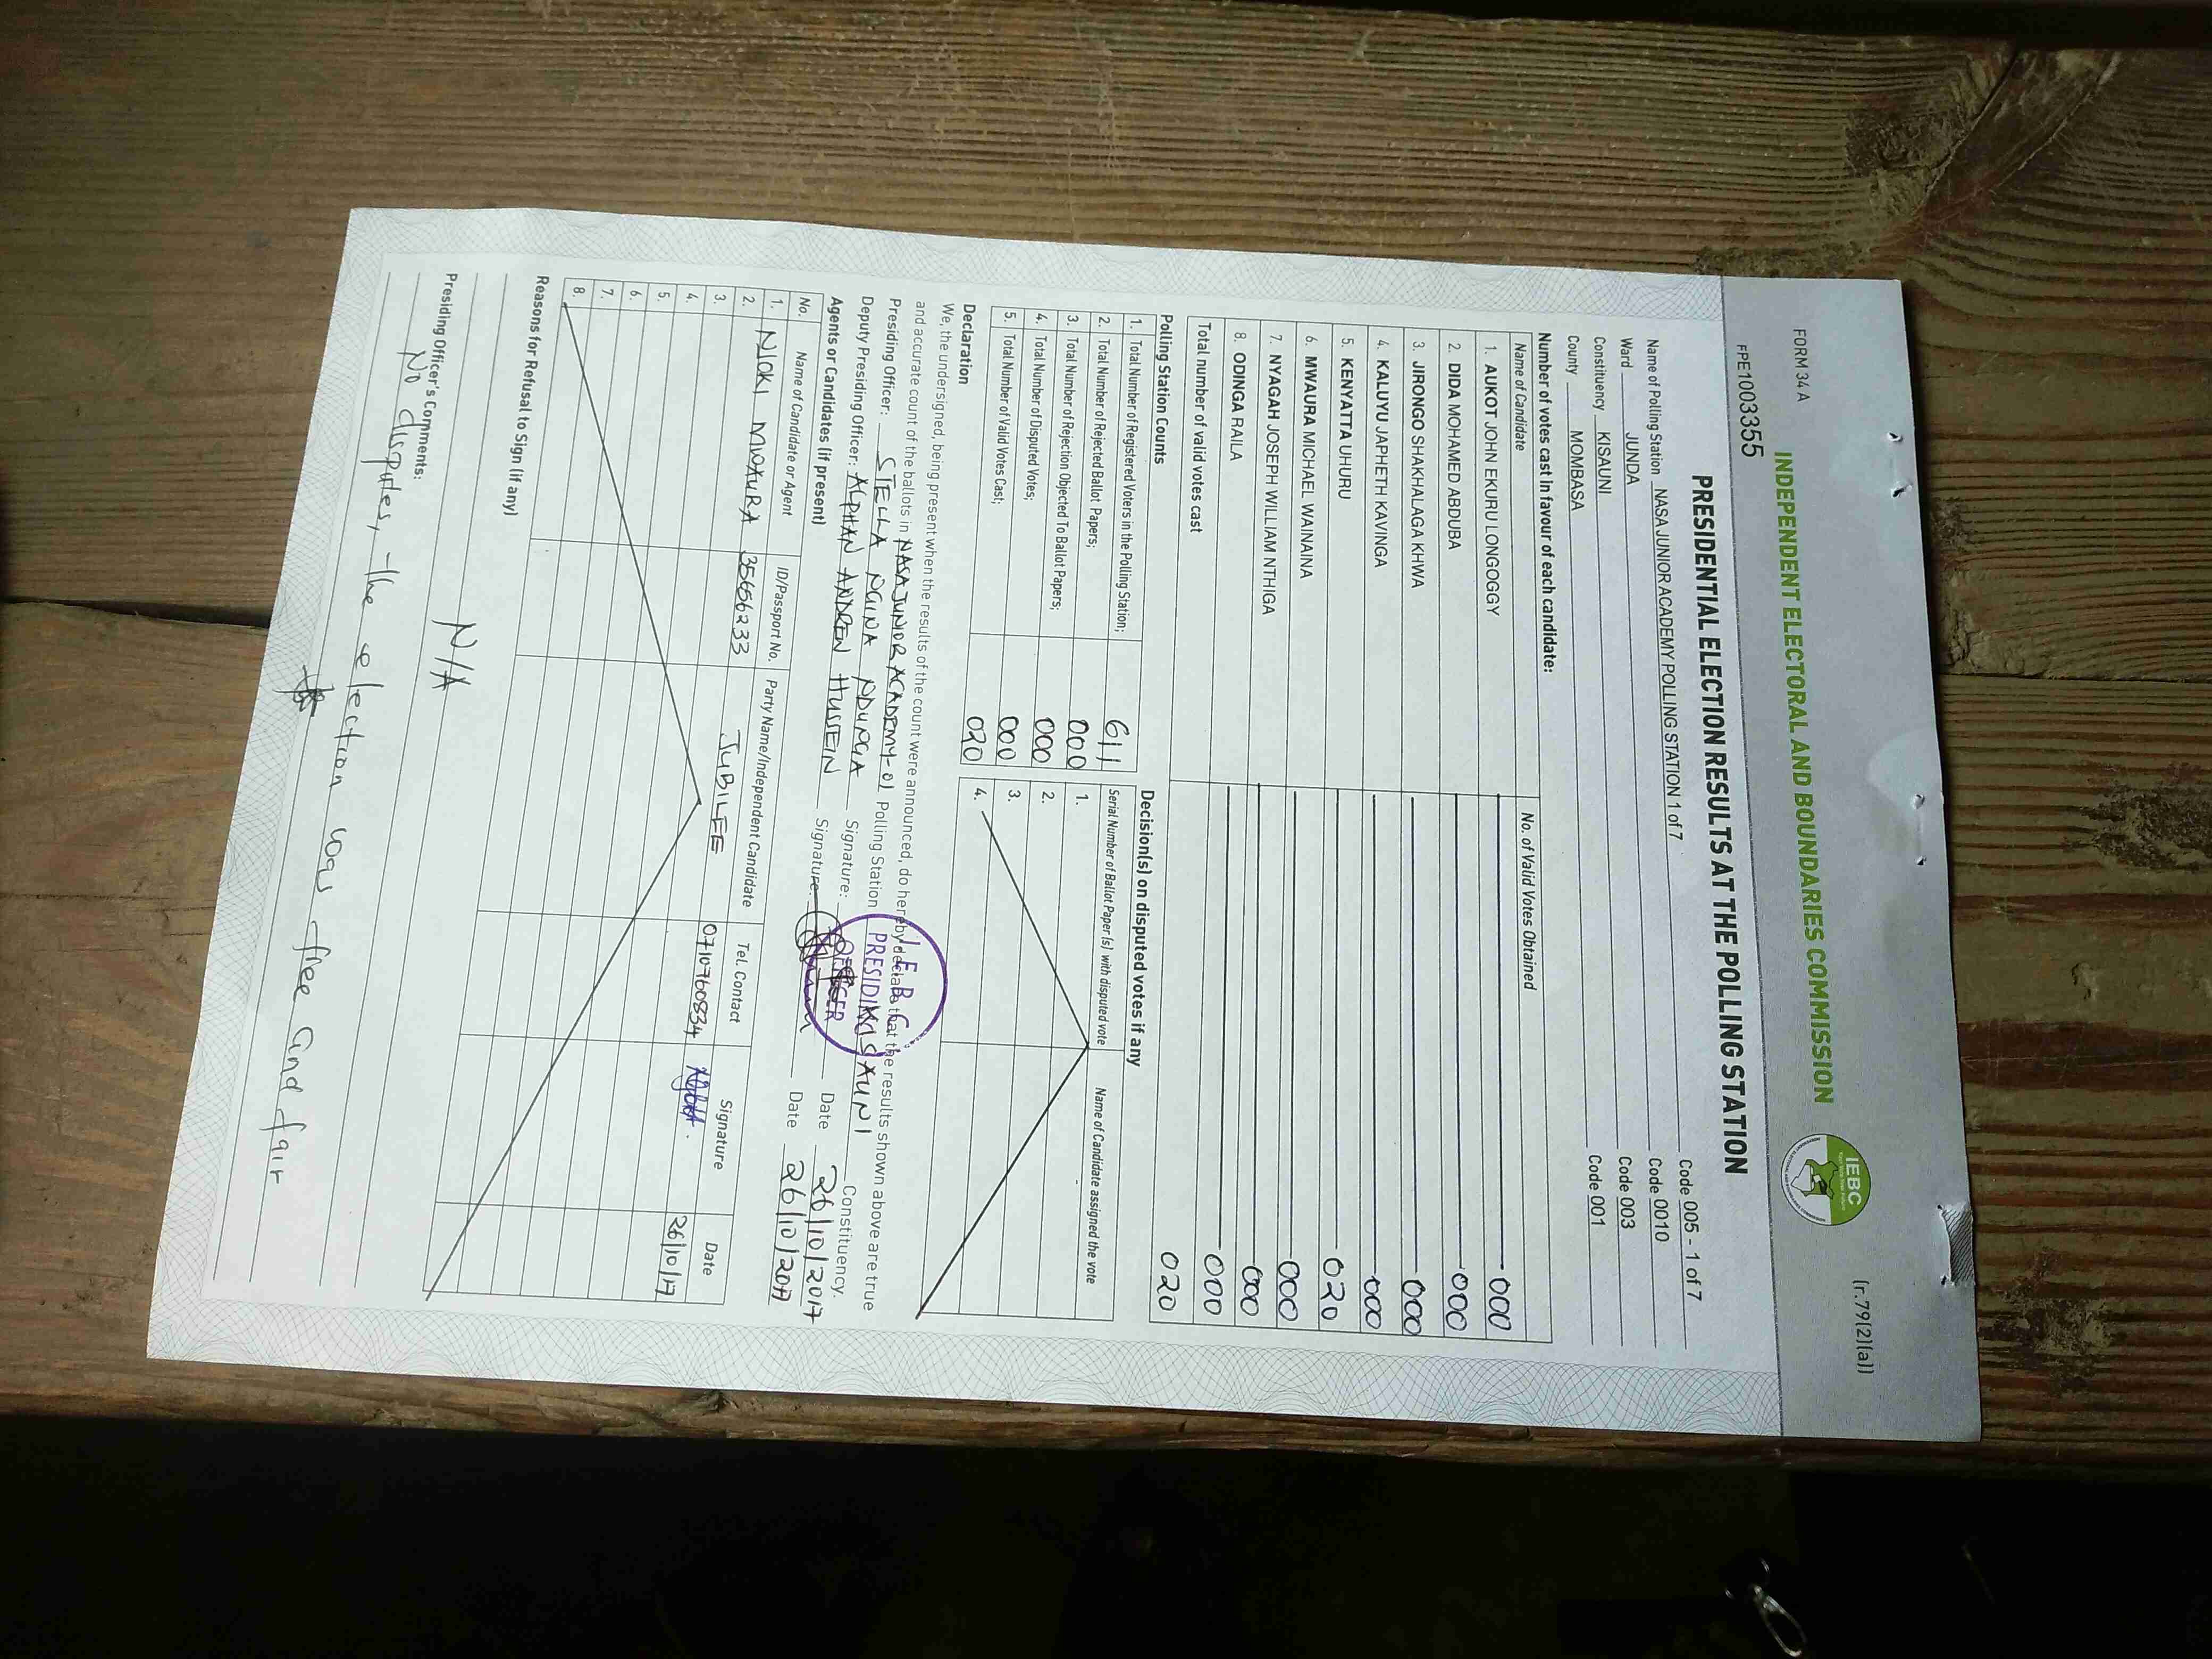 FORM 34 A
(r.79(2)(a))
INDEPENDENT ELECTORAL AND BOUNDARIES COMMISSION
IEBC
FPE1003355
PRESIDENTIAL ELECTION RESULTS AT THE POLLING STATION
Name of Polling Station NASA JUNIOR ACADEMY POLLING STATION 1 of 7 Code 005 - 1 of 7
Ward JUNDA Code 0010
Constituency KISAUNI Code 003
County MOMBASA Code 001
Number of votes cast in favour of each candidate:
Name of Candidate No. of Valid Votes Obtained
1. AUKOT JOHN EKURU LONGOGGY 000
2. DIDA MOHAMED ABDUBA 000
3. JIRONGO SHAKHALAGA KHWA 000
4. KALUYU JAPHETH KAVINGA 000
5. KENYATTA UHURU 020
6. MWAURA MICHAEL WAINAINA 000
7. NYAGAH JOSEPH WILLIAM NTHIGA 000
8. ODINGA RAILA 000
Total number of valid votes cast 020
Polling Station Counts
1. Total Number of Registered Voters in the Polling Station; 611
2. Total Number of Rejected Ballot Papers; 000
3. Total Number of Rejection Objected To Ballot Papers; 000
4. Total Number of Disputed Votes; 000
5. Total Number of Valid Votes Cast; 020
Decision(s) on disputed votes if any
Serial Number of Ballot Paper (s) with disputed vote Name of Candidate assigned the vote
1.
2.
3.
4.
Declaration
We, the undersigned, being present when the results of the count were announced, do hereby declare that the results shown above are true
and accurate count of the ballots in NASA JUNIOR ACADEMY-01 Polling Station KISAUNI Constituency.
Presiding Officer: STELLA NGINA NDUNGA Signature: Date 26/10/2017
Deputy Presiding Officer: ALPHAN ANDREW HUSSEIN Signature: Date 26/10/2017
IEBC
PRESIDING
OFFICER
Agents or Candidates (if present)
No. Name of Candidate or Agent ID/Passport No. Party Name/Independent Candidate Tel. Contact Signature Date
1. NJOKI MWAURA 35656233 JUBILEE 0710760834 26/10/17
2.
3.
4.
5.
6.
7.
8.
Reasons for Refusal to Sign (if any)
N/A
Presiding Officer's Comments:
No disputes, the election was free and fair